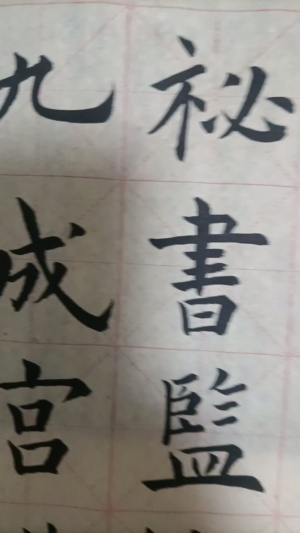 祕書監
九成宮